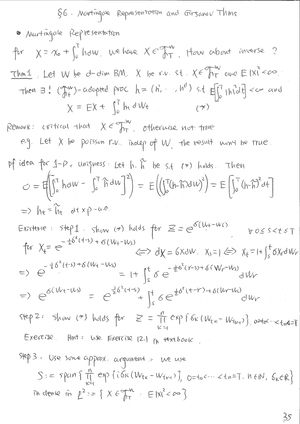 §6. Martingale Representation and Girsanov Thms
• Martingale Representation
for X = x₀ + ∫₀ᵀ h dW, we have X ∈ ℱ_T^W. How about inverse?
Thm 1. Let W be d-dim BM. X be r.v. s.t. X ∈ ℱ_T^W and E|X|² < ∞
Then ∃! (ℱ_t^W)-adapted proc h = (h¹, ..., hᵈ) s.t. E[∫₀ᵀ |h|² dt] < ∞ and
X = EX + ∫₀ᵀ h_t dW_t (*)
Remark: critical that X ∈ ℱ_T^W, otherwise not true
e.g. Let X be poisson r.v. indep of W, the result won't be true.
Pf idea for 1-D, uniqueness: Let h, h̃ be s.t. (*) holds. Then
0 = E[∫₀ᵀ h dW − ∫₀ᵀ h̃ dW]² = E[(∫₀ᵀ (h−h̃) dW)²] = E[∫₀ᵀ (h−h̃)² dt]
⇒ h_t = h̃_t dt×P-a.e.
Existence: step 1. show (*) holds for Z = e^{σ(W_t−W_s)} ∀ 0≤s<t≤T
for X_t = e^{−½σ²(t−s)+σ(W_t−W_s)} ⇔ dX = σX dW, X_s = 1 ⇔ X_t = 1 + ∫_s^t σX dW_r
⇒ e^{−½σ²(t−s)+σ(W_t−W_s)} = 1 + ∫_s^t σ e^{−½σ²(r−s)+σ(W_r−W_s)} dW_r
⇒ e^{σ(W_t−W_s)} = e^{½σ²(t−s)} + ∫_s^t σ e^{½σ²(t−r)+σ(W_r−W_s)} dW_r
step 2: show (*) holds for Z = ∏_{k=1}^n exp{σ_k(W_{t_k} − W_{t_{k−1}})}, 0=t₀<...<t_n=T
Exercise. Hint: use Exercise 12.1 in textbook.
step 3. Use some approx. argument, we use
S := span{∏_{k=1}^n exp{iσ_k(W_{t_k} − W_{t_{k−1}})}, 0=t₀<...<t_n=T, n∈ℕ, σ_k∈ℝ}
is dense in L² := {X ∈ ℱ_T^W : E|X|² < ∞}
35